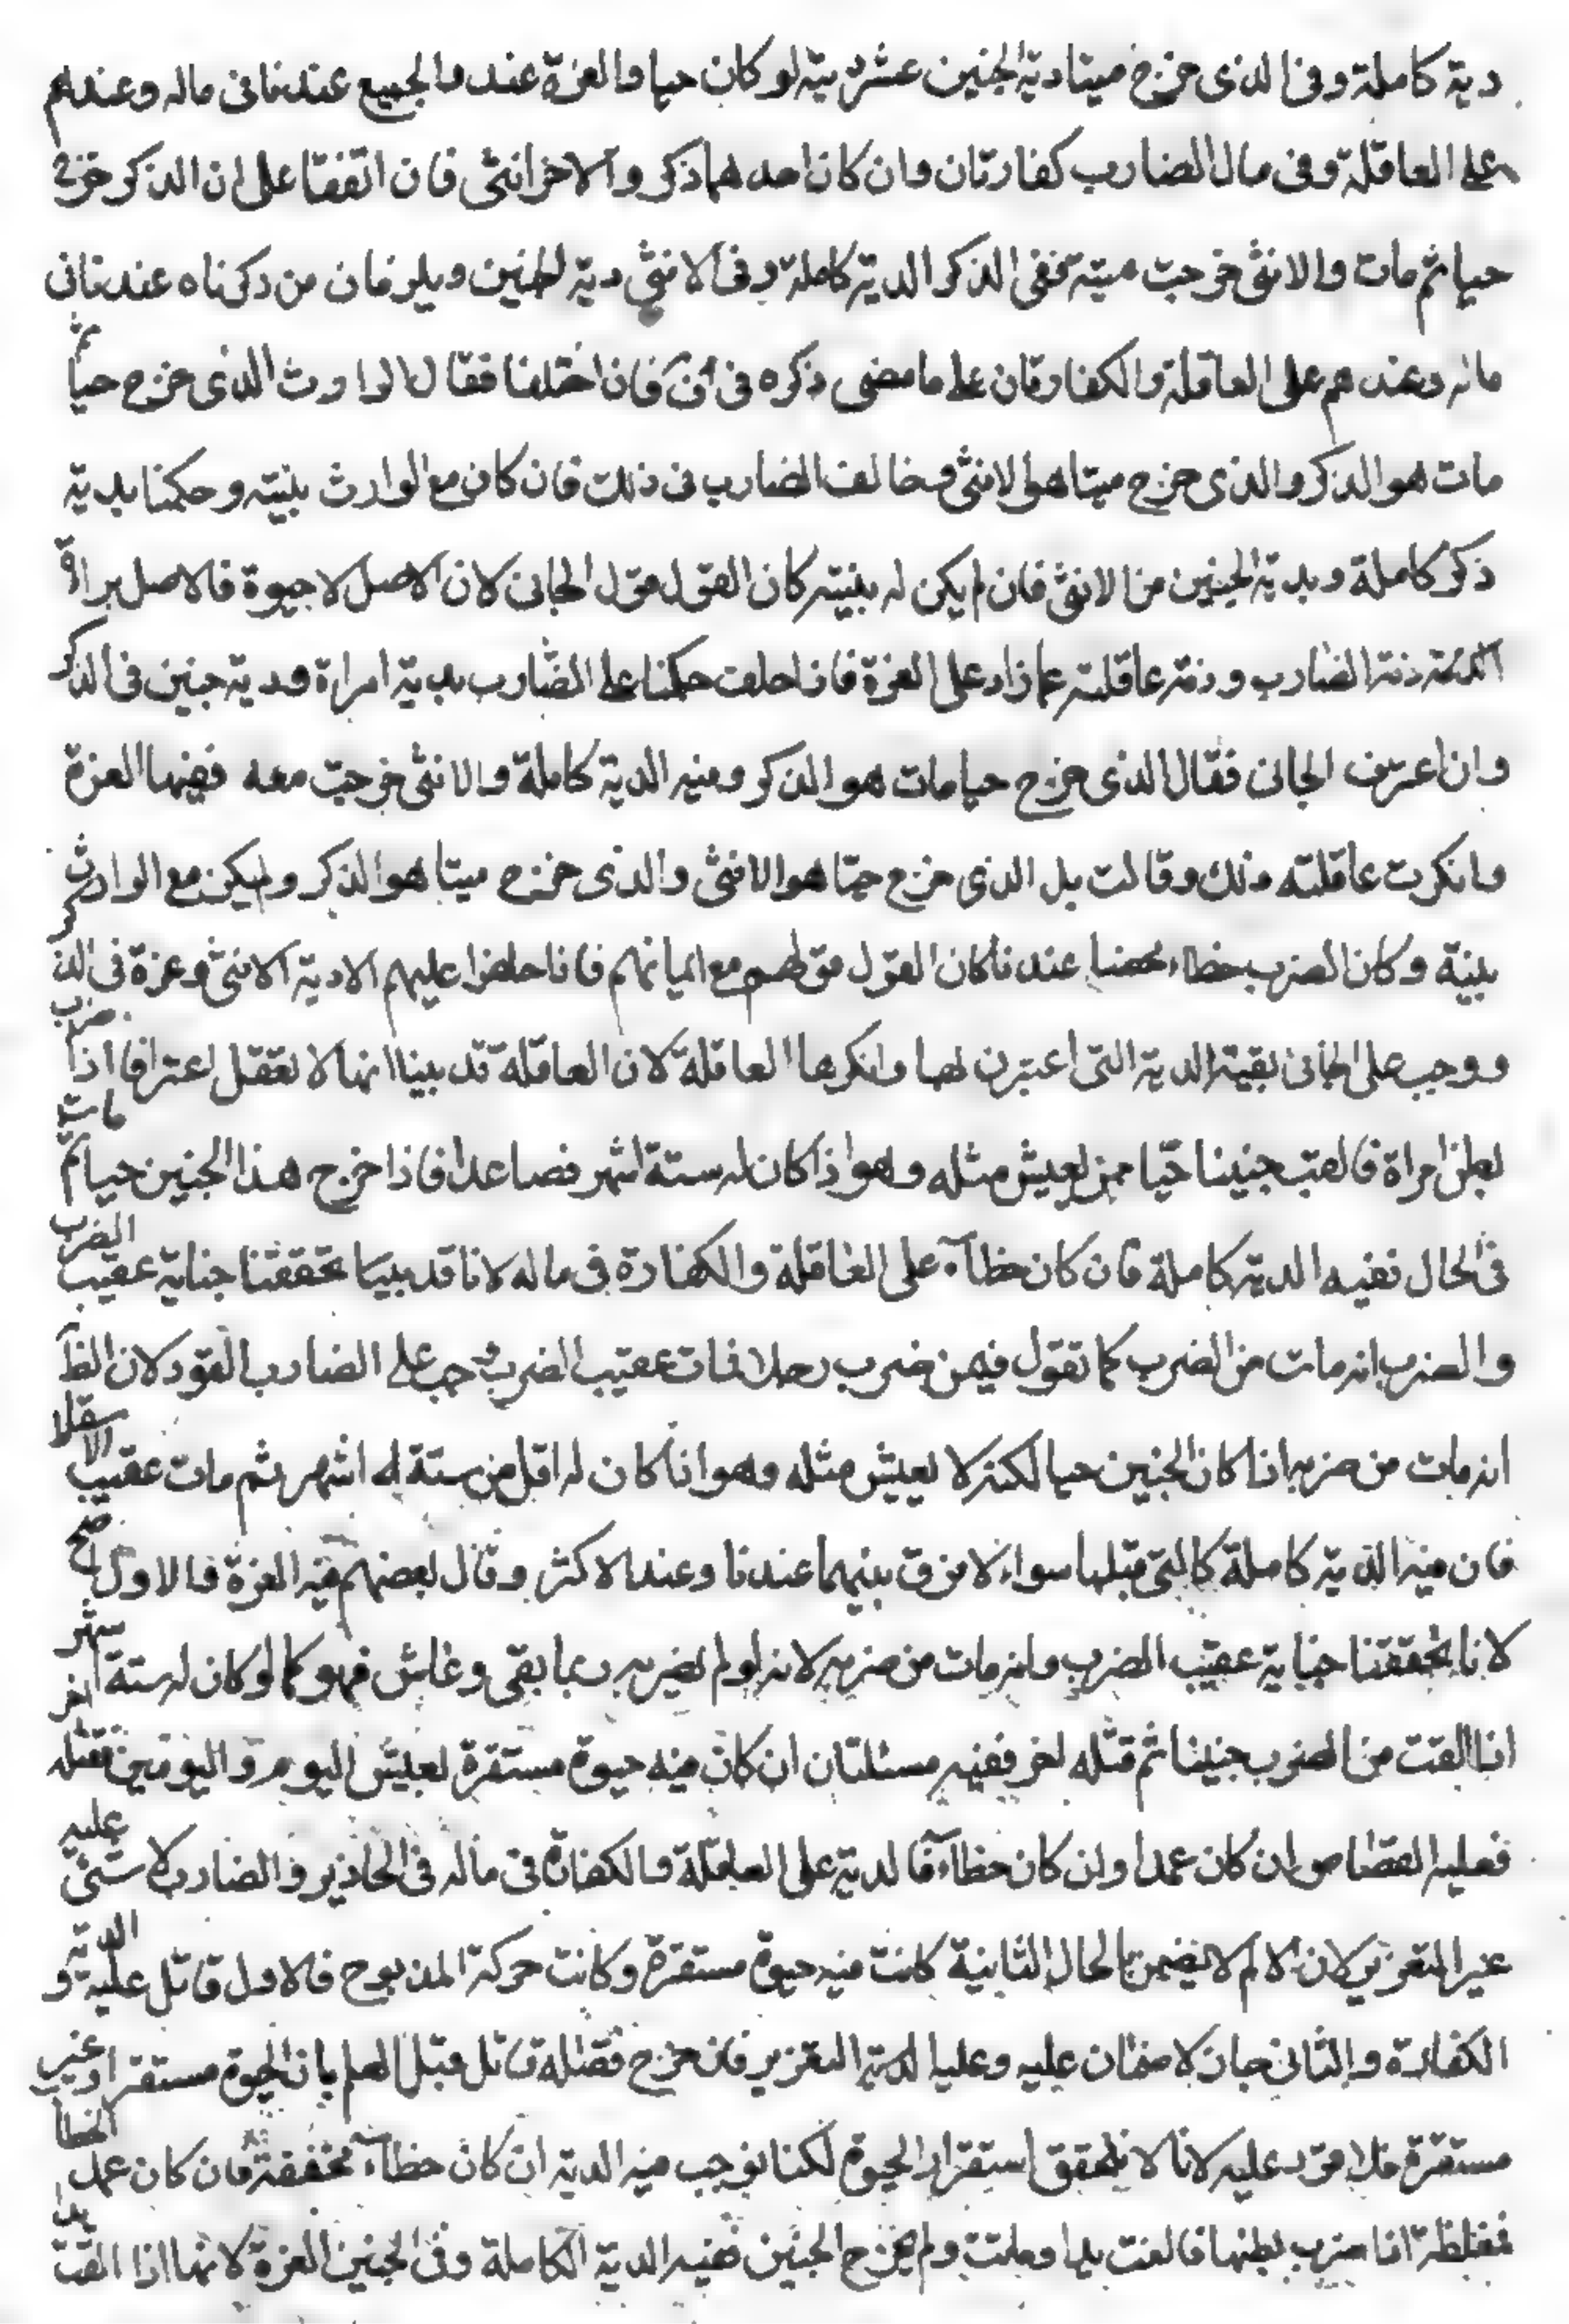 دية كاملة وفى الذى خرج ميتا دية الجنين عشر دية لو كان حيا والغرة عندهم والجميع عندنا فى ماله وعندهم
على العاقلة وفى مال الضارب كفارتان وان كان احدهما ذكر والاخر انثى فان اتفقا على ان الذكر خرج
حيا ثم مات والانثى خرجت ميتة ففى الذكر الدية كاملة وفى الانثى دية الجنين ويلزمان من ذكرناه عندنا فى
ماله وعندهم على العاقلة والكفارتان على ما مضى ذكره فان اختلفا فقال الوارث الذى خرج حيا ثم
مات هو الذكر والذى خرج ميتا هو الانثى وخالف الضارب فى ذلك فان كان مع الوارث بينة وحكمنا بدية
ذكر كاملة وبدية الجنين من الانثى فان لم يكن له بينة كان القول قول الجانى لان الاصل لا حيوة فالاصل براءة
الذمة ذمة الضارب وذمة عاقلته عما زاد على الغرة فاذا حلف حكمنا على الضارب بدية امراة ودية جنين فى الذكر
وان اعترف الجانى فقال الذى خرج حيا مات هو الذكر وفيه الدية كاملة والانثى خرجت معه ففيها الغرة
وانكرت عاقلته ذلك وقالت بل الذى خرج حيا هو الانثى والذى خرج ميتا هو الذكر ولم يكن مع الوارث
بينة وكان الضرب خطاء محضا عندنا كان القول قولهم مع ايمانهم فاذا حلفوا عليهم الا دية الانثى وغرة فى الذكر
ووجب على الجانى بقية الدية التى اعترف بها وانكرها العاقلة لان العاقلة قد بينا انها لا تعقل اعترافا اذا ضرب
بطن امراة فالقت جنينا حيا ممن يعيش مثله وهو اذا كان له ستة اشهر فصاعدا فاذا خرج هذا الجنين حيا ثم مات
فى الحال ففيه الدية كاملة فان كان خطاء على العاقلة والكفارة فى ماله لانا قد بينا تحققنا جناية عقيب الضرب
والضرب انه مات من الضرب كما تقول فيمن ضرب رجلا فمات عقيب الضرب وجب على الضارب القود لان الظ
انه مات من ضربه اذا كان الجنين حيا لكنه لا يعيش مثله وهو اذا كان له اقل من ستة اشهر ثم مات عقيب الاسقاط
فان فيه الدية كاملة كالتى قبلها سواء لا فرق بينهما عندنا وعند الاكثر وقال بعضهم فيه الغرة والاول اصح
لانا تحققنا جناية عقيب الضرب وانه مات من ضربه لانه لو لم يضربه ربما بقى وعاش فهو كما لو كان له ستة اشهر
اذا القت من الضرب جنينا ثم قتله اخر ففيه مسئلتان ان كان فيه حيوة مستقرة يعيش اليوم واليومين فقتله اخر
فعليه القصاص ان كان عمدا وان كان خطاء فالدية على العاقلة والكفارة فى ماله والضارب لا شئ عليه
غير التعزير لان الالم لا يضمن الحال الثانية كانت فيه حيوة مستقرة وكانت حركة المذبوح فالاول قاتل عليه الدية و
الكفارة والثانى جان لا ضمان عليه التعزير فان خرج فقتله قاتل قبل العلم بان الحيوة مستقر او غير
مستقرة فلا قود عليه لانا لا نتحقق استقرار الحيوة لكنا نوجب فيه الدية ان كان خطاء مخففة فان كان عمد الخطا
فمغلظة اذا ضرب بطنها فالقت يدا وماتت ولم يخرج الجنين ففيه الدية الكاملة وفى الجنين الغرة لانها اذا القت يدا